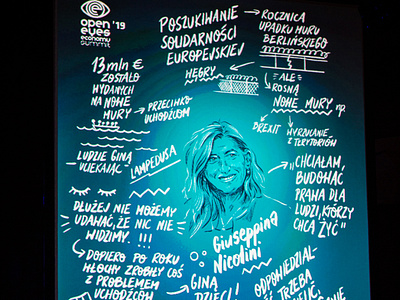 open '19
eyes
economy
summit
POSZUKIWANIE
SOLIDARNOŚCI
EUROPEJSKIEJ
ROCZNICA
UPADKU MURU
BERLIŃSKIEGO
WĘGRY
ALE
ROSNĄ
NOWE MURY np.
BREXIT
WYRZUCANIE
Z TERYTORIÓW
13 mln €
ZOSTAŁO
WYDANYCH
NA NOWE
MURY
PRZECIWKO
UCHODŹCOM
LUDZIE GINĄ
UCIEKAJĄC
LAMPEDUSA
"CHCIAŁAM,
BUDOWAĆ
PRAWA DLA
LUDZI, KTÓRZY
CHCĄ ŻYĆ"
DŁUŻEJ NIE MOŻEMY
UDAWAĆ, ŻE NIC NIE
WIDZIMY. !!!
Giuseppina
Nicolini
DOPIERO PO ROKU
WŁOCHY ZROBIŁY COŚ
Z PROBLEMEM
UCHODŹCÓW
GINĄ
DZIECI!
ODPOWIEDZIAL-
TRZEBA